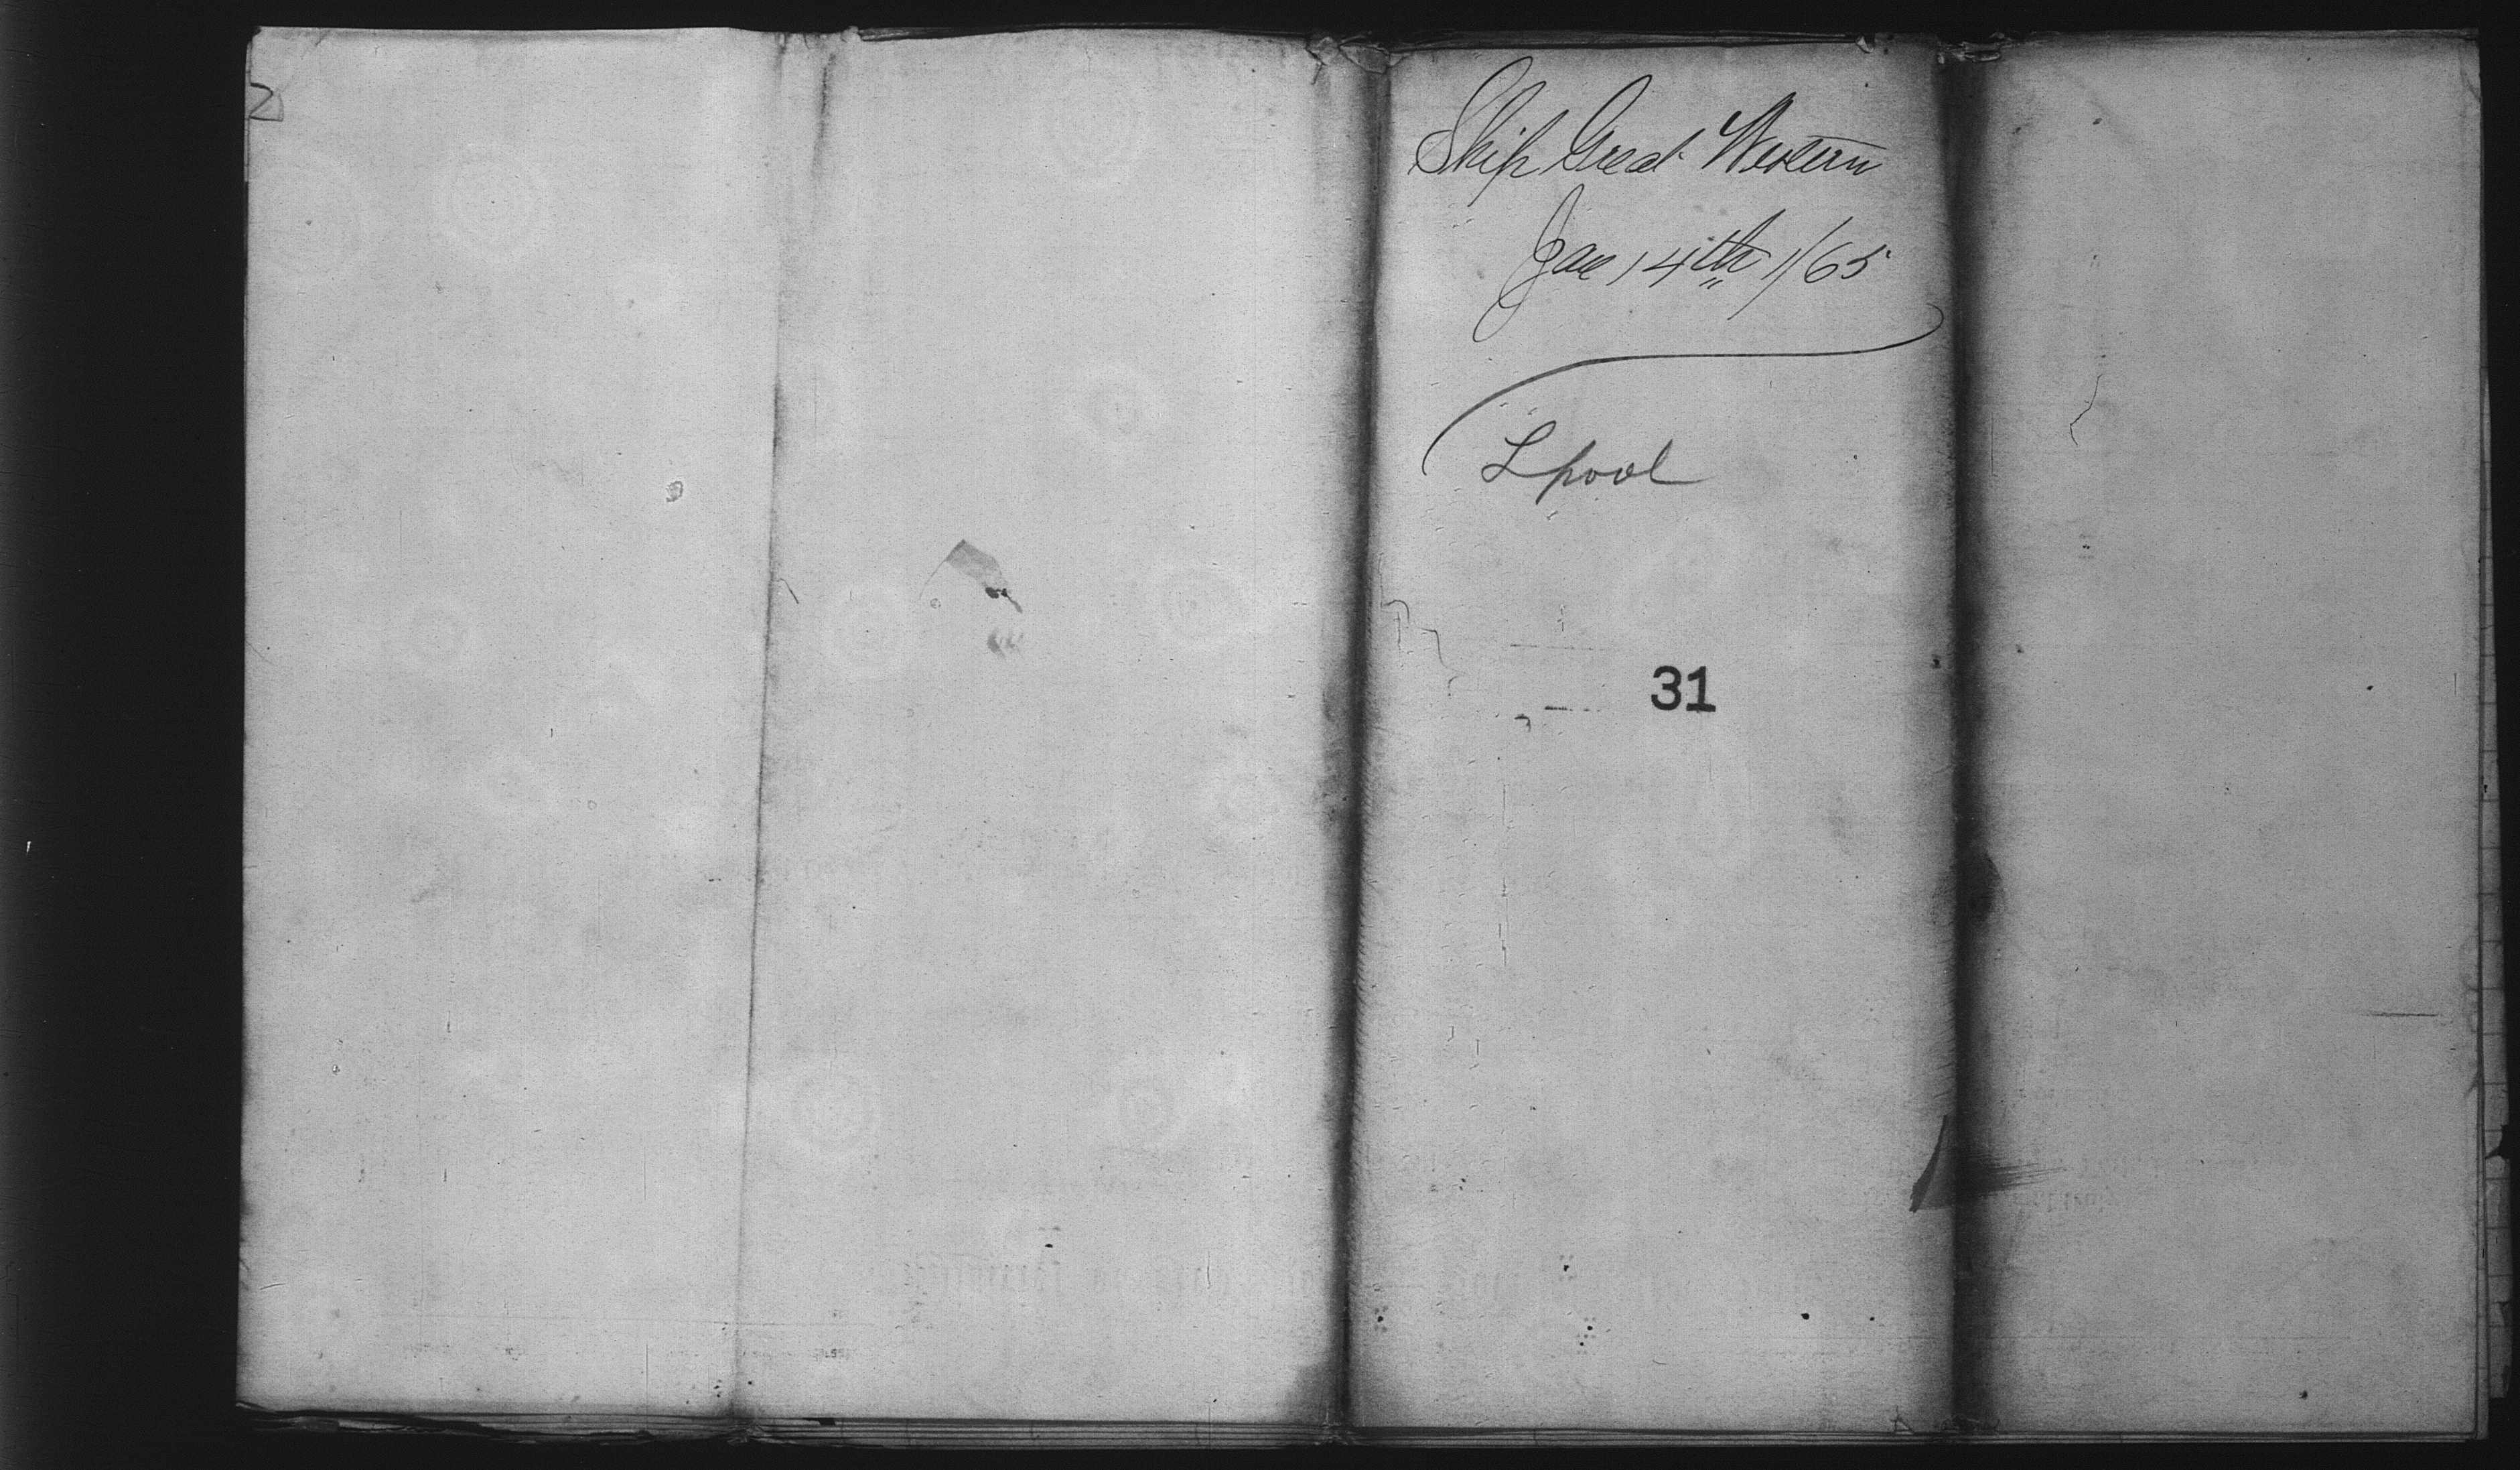 2
Ship Great Western
Jan 14th 1/65
Lpool
31